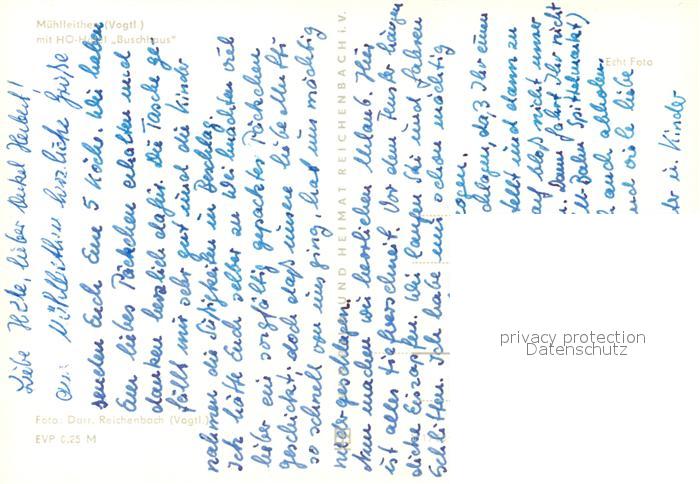 Mühlleithen (Vogtl.)
mit HO-Hotel „Buschhaus"
Echt Foto
Liebe Käte, lieber Onkel Herbert!
Aus Mühlleithen herzliche Grüße
senden Euch Eure 5 Köche. Wir haben
Euer liebes Päckchen erhalten und
danken herzlich dafür. Die Tasche ge-
fällt mir sehr gut und die Kinder
nahmen die Süßigkeiten in Beschlag.
Ich hätte Euch selber zu Weihnachten viel
lieber ein sorgfältig gepacktes Päckchen
geschickt, doch daß unsere liebe alte
so schnell von uns ging, hat uns mächtig
niedergeschlagen.
Nun machen wir herrlichen Urlaub. Hier
ist alles tiefverschneit. Vor dem Fenster hängen
dicke Eiszapfen. Wir laufen Ski und fahren
Schlitten. Ich habe mich schon mächtig
ogen.
chlagen, daß Ihr einen
tellt und dann zu
auf bloß nicht unser
. Dann fahrt Ihr nicht
Bahn Spittelmarkt)
auch abholen.
und viele liebe
u. Kinder
UND HEIMAT REICHENBACH i. V.
Foto: Darr, Reichenbach (Vogtl.)
EVP 0,25 M
privacy protection
Datenschutz